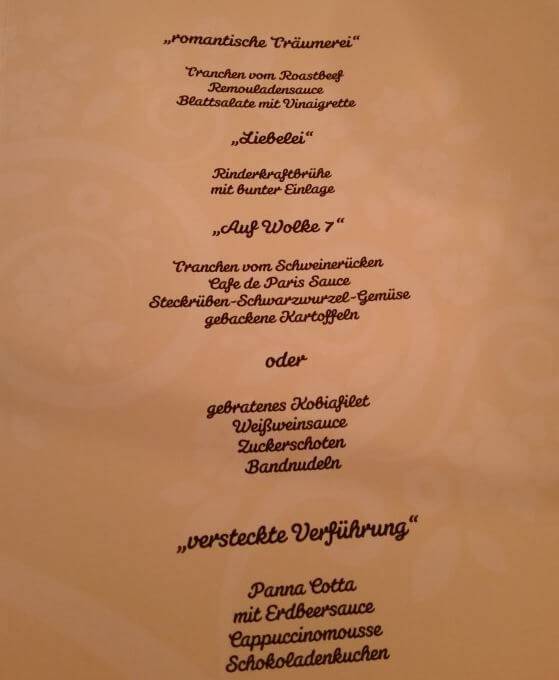 „romantische Träumerei“
Tranchen vom Roastbeef
Remouladensauce
Blattsalate mit Vinaigrette
„Liebelei“
Rinderkraftbrühe
mit bunter Einlage
„Auf Wolke 7“
Tranchen vom Schweinerücken
Cafe de Paris Sauce
Steckrüben-Schwarzwurzel-Gemüse
gebackene Kartoffeln
oder
gebratenes Kobiafilet
Weißweinsauce
Zuckerschoten
Bandnudeln
„versteckte Verführung“
Panna Cotta
mit Erdbeersauce
Cappuccinomousse
Schokoladenkuchen